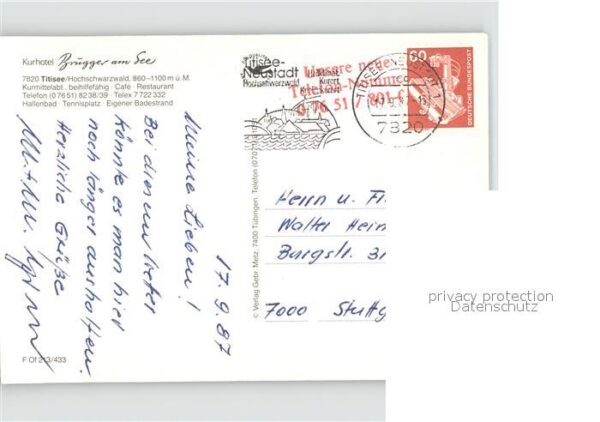 Kurhotel Brugger am See
7820 Titisee/Hochschwarzwald, 860–1100 m ü. M.
Kurmittelabt., beihilfefähig · Cafe · Restaurant
Telefon (0 76 51) 82 38/39 · Telex 7 722 332
Hallenbad · Tennisplatz · Eigener Badestrand
Titisee-
Neustadt
Hochschwarzwald
Kurort
Unsere neue
Telefon-Nummer
0 76 51 / 801-0
7820
60
DEUTSCHE BUNDESPOST
17.9.87
Meine Lieben!
Bei diesem Wetter
könnte es man hier
noch länger aushalten.
Herzliche Grüße
© Verlag Gebr. Metz, 7400 Tübingen, Telefon
Herrn u. Fr
Walter Hein
Burgstr. 31
7000 Stuttg
F Of 213/433
privacy protection
Datenschutz